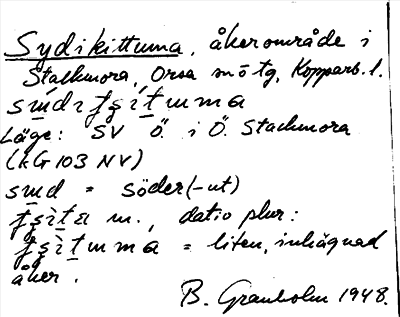 Sydikittuma, åkerområde i
Stackmora, Orsa sn o tg, Kopparb. l.
Läge: SV Ö. i Ö. Stackmora
(kG 103 NV)
= söder(-ut)
m., dativ plur:
= liten, inhägnad
åker.
B. Granholm 1948.